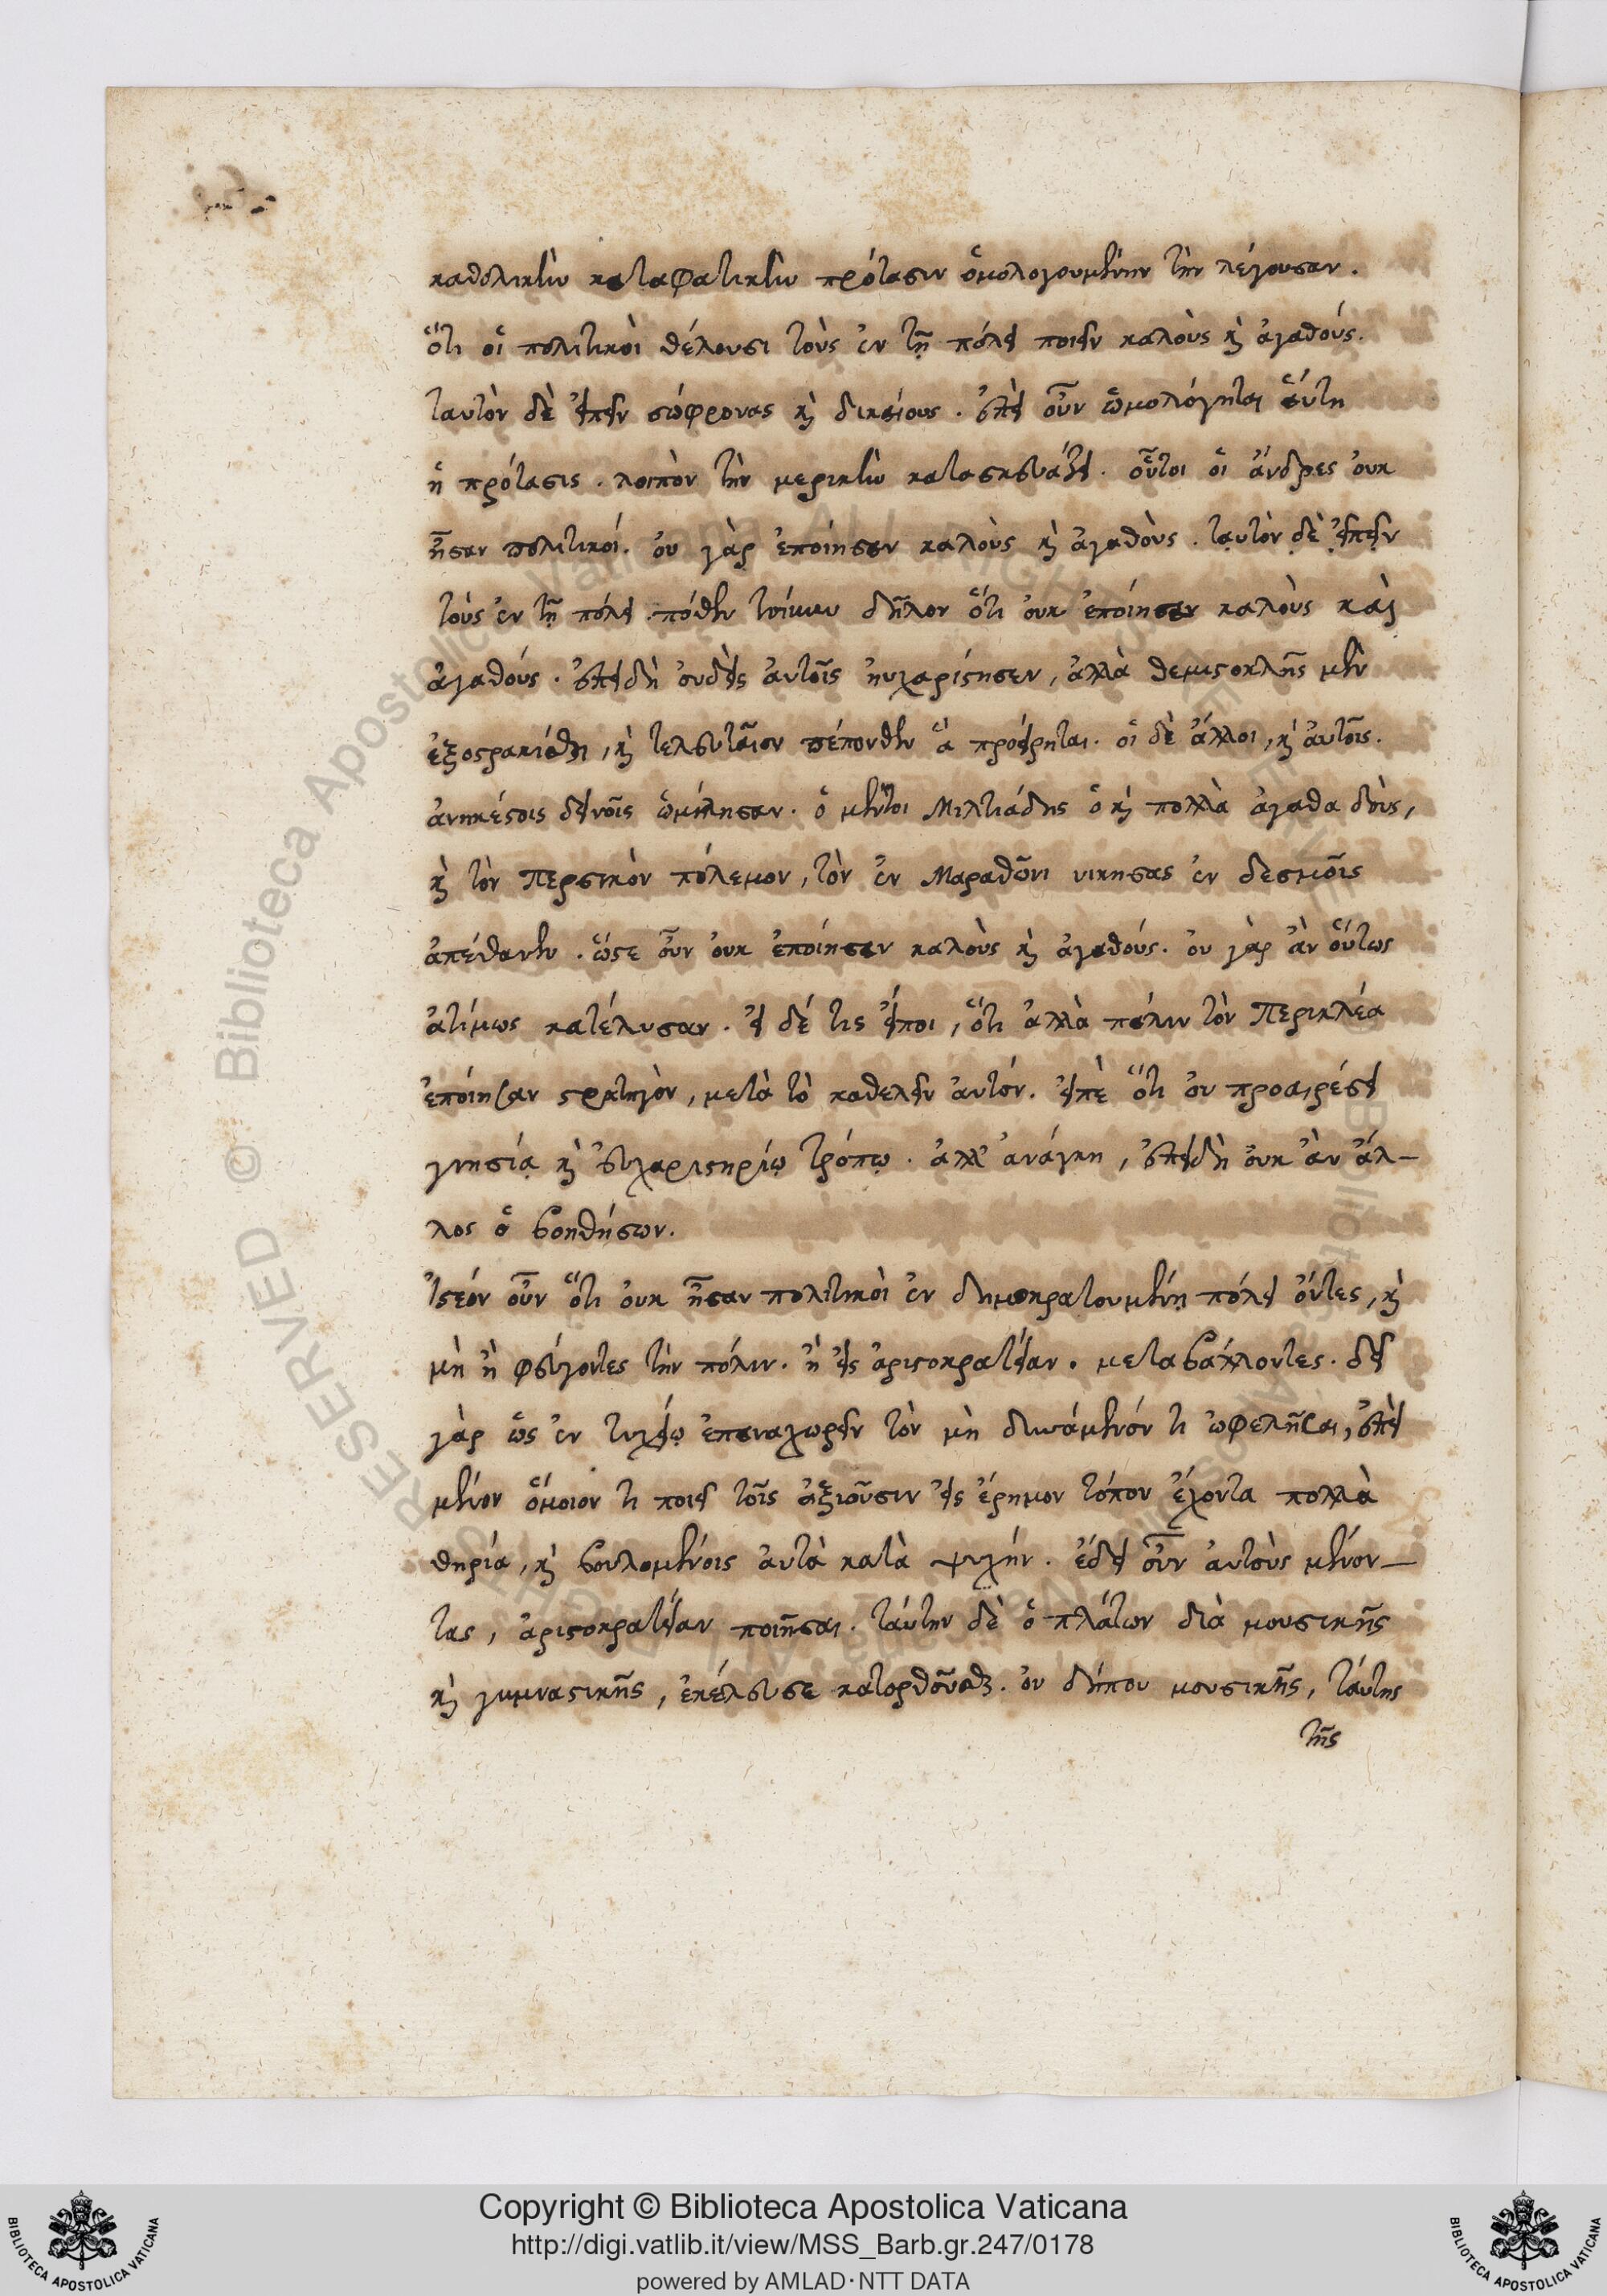 καθολικὴν καταφατικὴν πρότασιν ὁμολογουμένην τὴν λέγουσαν.
ὅτι οἱ πολιτικοὶ θέλουσι τοὺς ἐν τῇ πόλει ποιεῖν καλοὺς κ̀ ἀγαθούς.
ταυτὸν δὲ εἰπεῖν σώφρονας κ̀ δικαίους. ἐπεὶ οὖν ὡμολόγηται αὕτη
ἡ πρότασις. λοιπὸν τὴν μερικὴν κατασκευάζει. οὗτοι οἱ ἄνδρες οὐκ
ἦσαν πολιτικοί. οὐ γὰρ ἐποίησαν καλοὺς κ̀ ἀγαθοὺς. ταυτὸν δὲ εἰπεῖν
τοὺς ἐν τῇ πόλει. πόθεν τοίνυν δῆλον ὅτι οὐκ ἐποίησαν καλοὺς καὶ
ἀγαθούς. ἐπειδὴ οὐδεὶς ἀυτοῖς ηὐχαρίστησεν, ἀλλὰ θεμιστοκλῆς μὲν
ἐξοστρακίσθη, κ̀ τελευταῖον πέπονθεν ἃ προείρηται. οἱ δὲ ἄλλοι, κ̀ ἀυτοῖς.
ἀνηκέστοις δεινοῖς ὡμίλησαν. ὁ μέντοι Μιλτιάδης ὁ κ̀ πολλὰ ἀγαθα δοὺς,
κ̀ τὸν Περσικὸν πόλεμον, τὸν ἐν Μαραθῶνι νικησας ἐν δεσμοῖς
ἀπέθανεν. ὥστε οὖν οὐκ ἐποίησαν καλοὺς κ̀ ἀγαθούς. οὐ γὰρ ἂν οὕτως
ἀτίμως κατέλυσαν. εἰ δέ τις εἴποι, ὅτι ἀλλὰ πάλιν τὸν Περικλέα
ἐποίησαν στρατηγὸν, μετὰ τὸ καθελεῖν ἀυτόν. εἰπὲ ὅτι οὐ προαιρέσει
γνησίᾳ κ̀ εὐχαριστηρίῳ τρόπῳ. ἀλλ' ἀνάγκῃ, ἐπειδὴ οὐκ ἂν ἄλ-
λος ὁ βοηθήσων.
Ἰστέον οὖν ὅτι οὐκ ἦσαν πολιτικοὶ ἐν δημοκρατουμένῃ πόλει ὄντες, κ̀
μὴ ἢ φεύγοντες τὴν πόλιν. ἢ εἰς ἀριστοκρατείαν. μεταβάλλοντες. δεῖ
γὰρ ὡς ἐν τειχείῳ ἐπαναχωρεῖν τὸν μὴ δυνάμενόν τι ὠφελῆσαι, ἐπεὶ
μένον ὅμοιον τι ποιεῖ τοῖς ἀξιοῦσιν εἰς ἔρημον τόπον ἔχοντα πολλὰ
θηρία, κ̀ βουλομένοις ἀυτὰ κατὰ ψυχήν. ἔδει οὖν ἀυτοὺς μένον-
τας, ἀριστοκρατείαν ποιῆσαι. ταύτην δὲ ὁ πλάτων διὰ μουσικῆς
κ̀ γυμναστικῆς, ἐκέλευσε κατορθοῦσθαι. οὐ δήπου μουσικῆς, ταύτης
τῆς
Copyright © Biblioteca Apostolica Vaticana
http://digi.vatlib.it/view/MSS_Barb.gr.247/0178
powered by AMLAD·NTT DATA